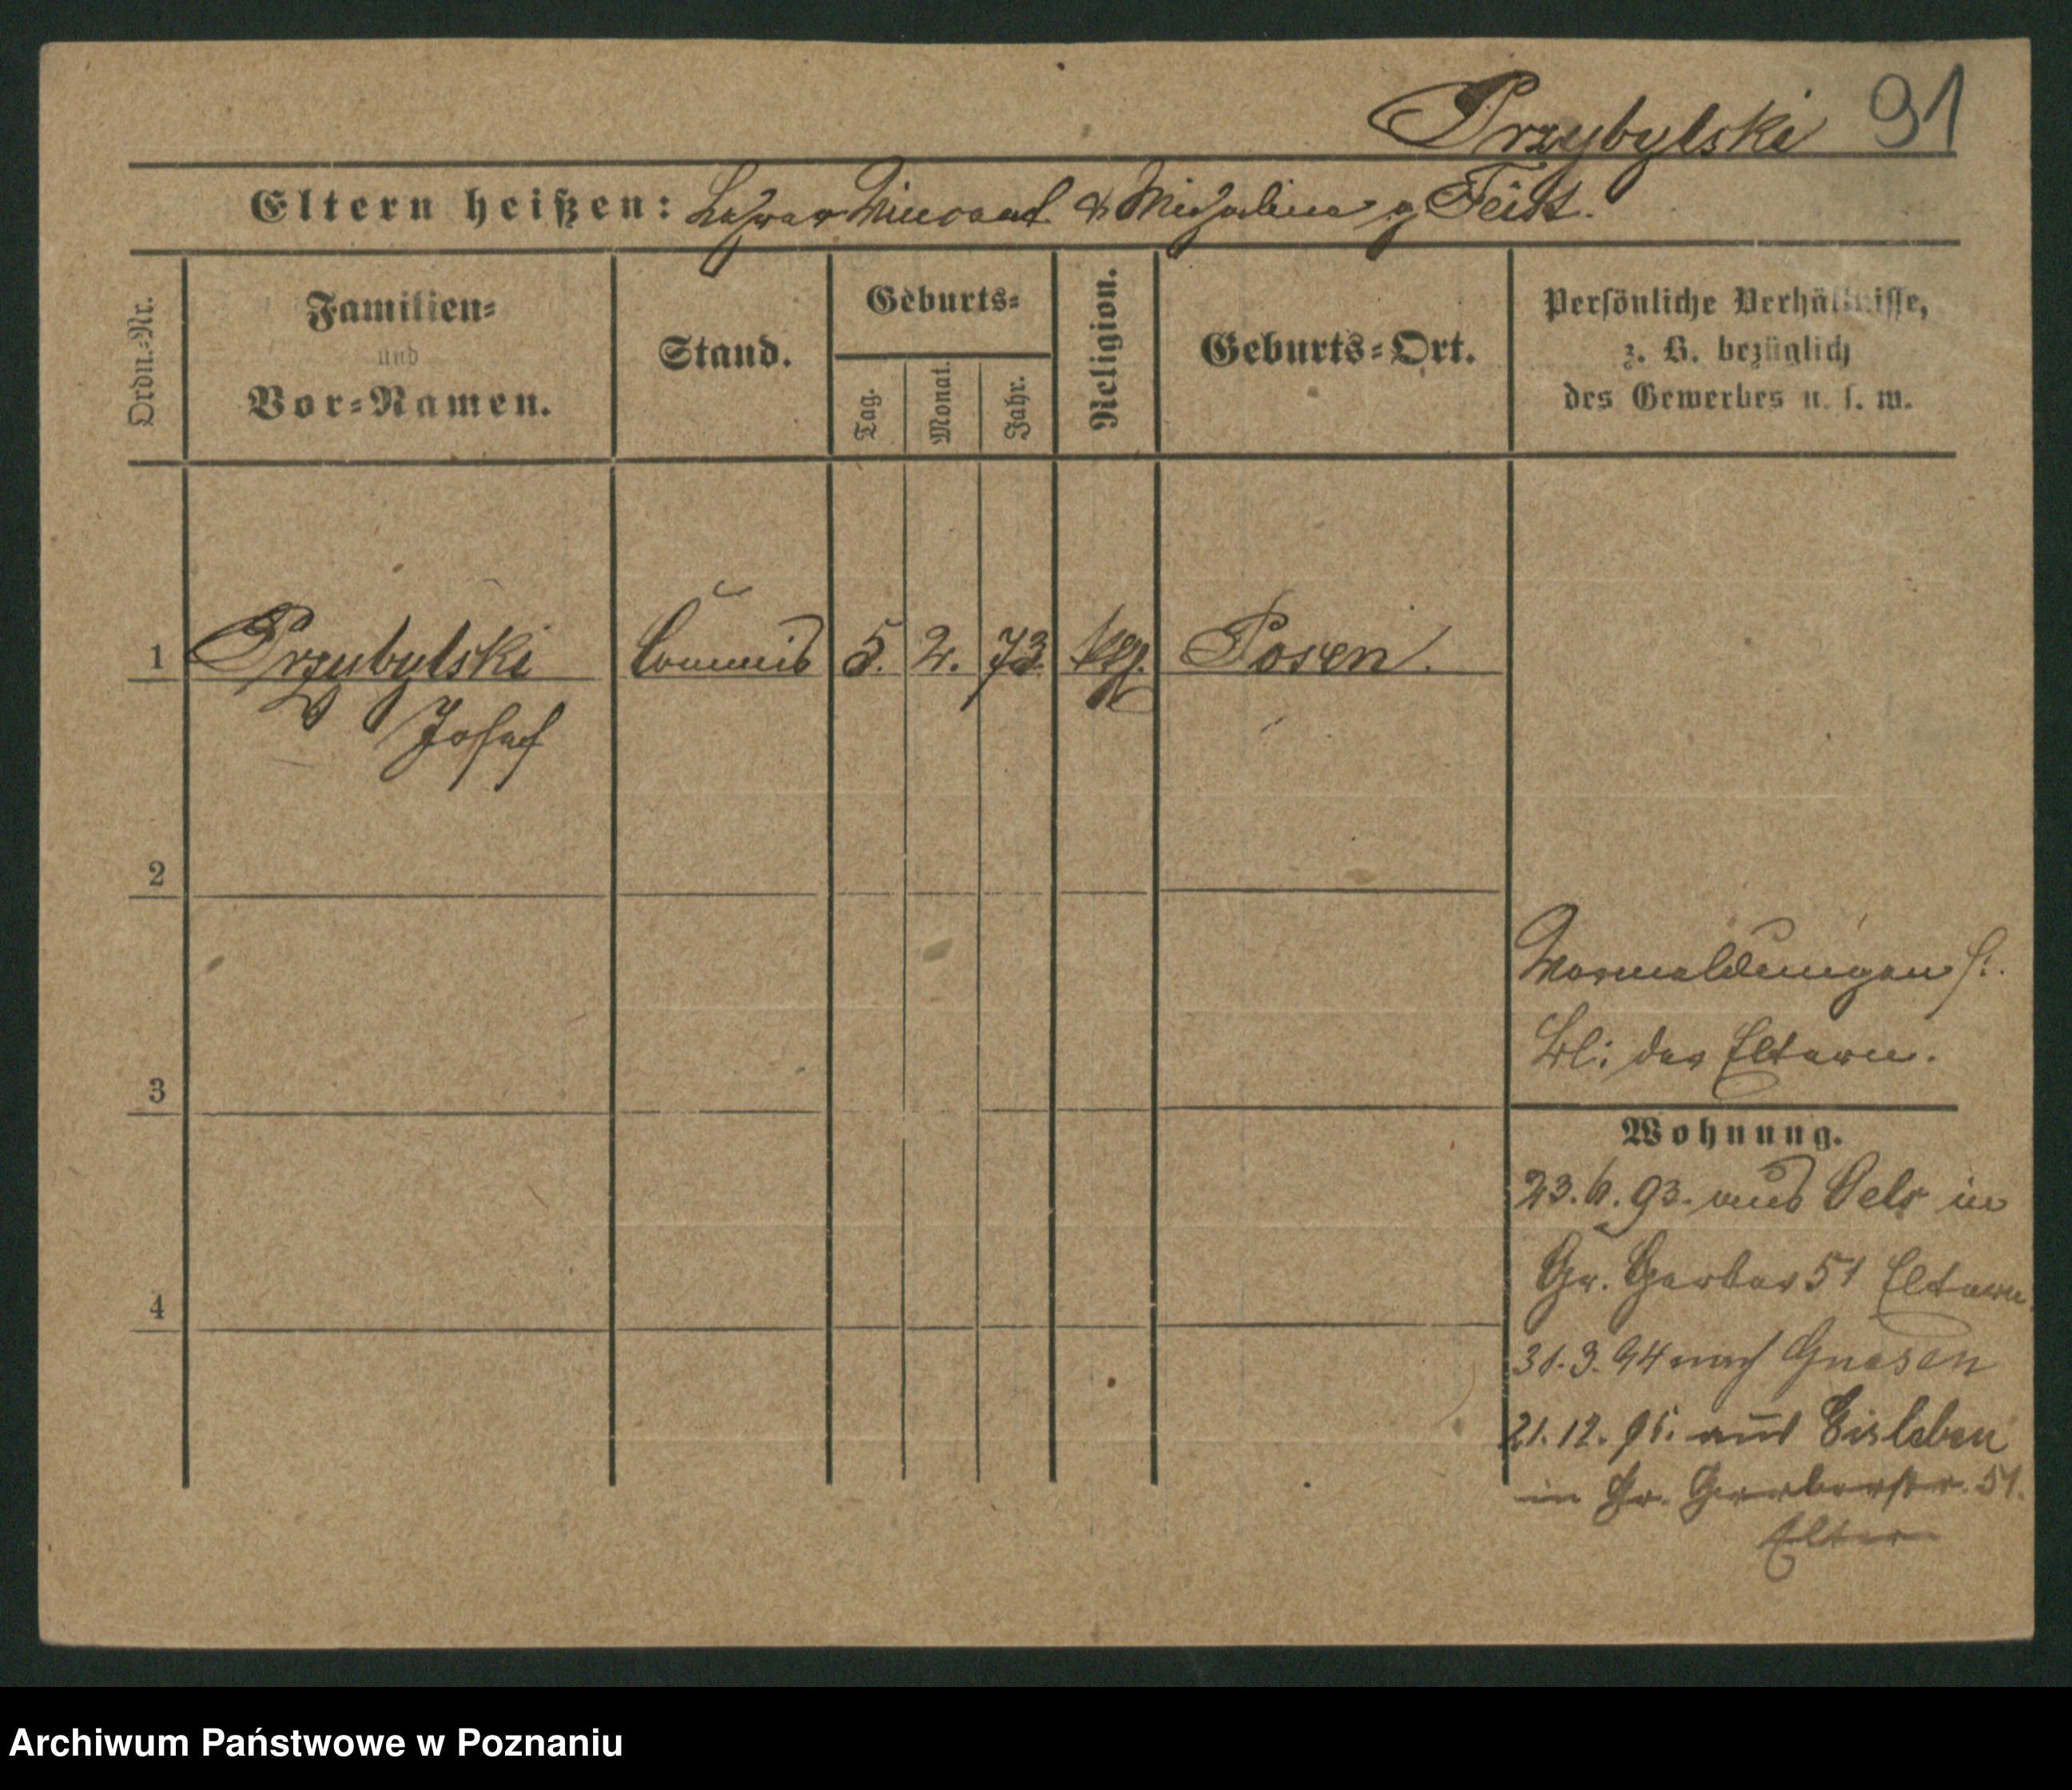 Przybylski 91
Eltern heißen: Lehrer Vincent & Michalina g Feist.
Ordn.-Nr.
Familien-
und
Vor-Namen.
Stand.
Geburts-
Tag.
Monat.
Jahr.
Religion.
Geburts-Ort.
Persönliche Verhältnisse,
z. B. bezüglich
des Gewerbes u. s. w.
1 Przybylski Commis 5. 2. 73 Posen.
Josef
2
Vormeldungen s:
bl: der Eltern.
3
Wohnung.
23.6.93. aus Oels in
Gr. Gerber 51 Eltern.
4
31.3.94 nach Gnesen
21.12.95. aus Eisleben
in Gr. Gerberstr. 51.
Elter
Archiwum Państwowe w Poznaniu